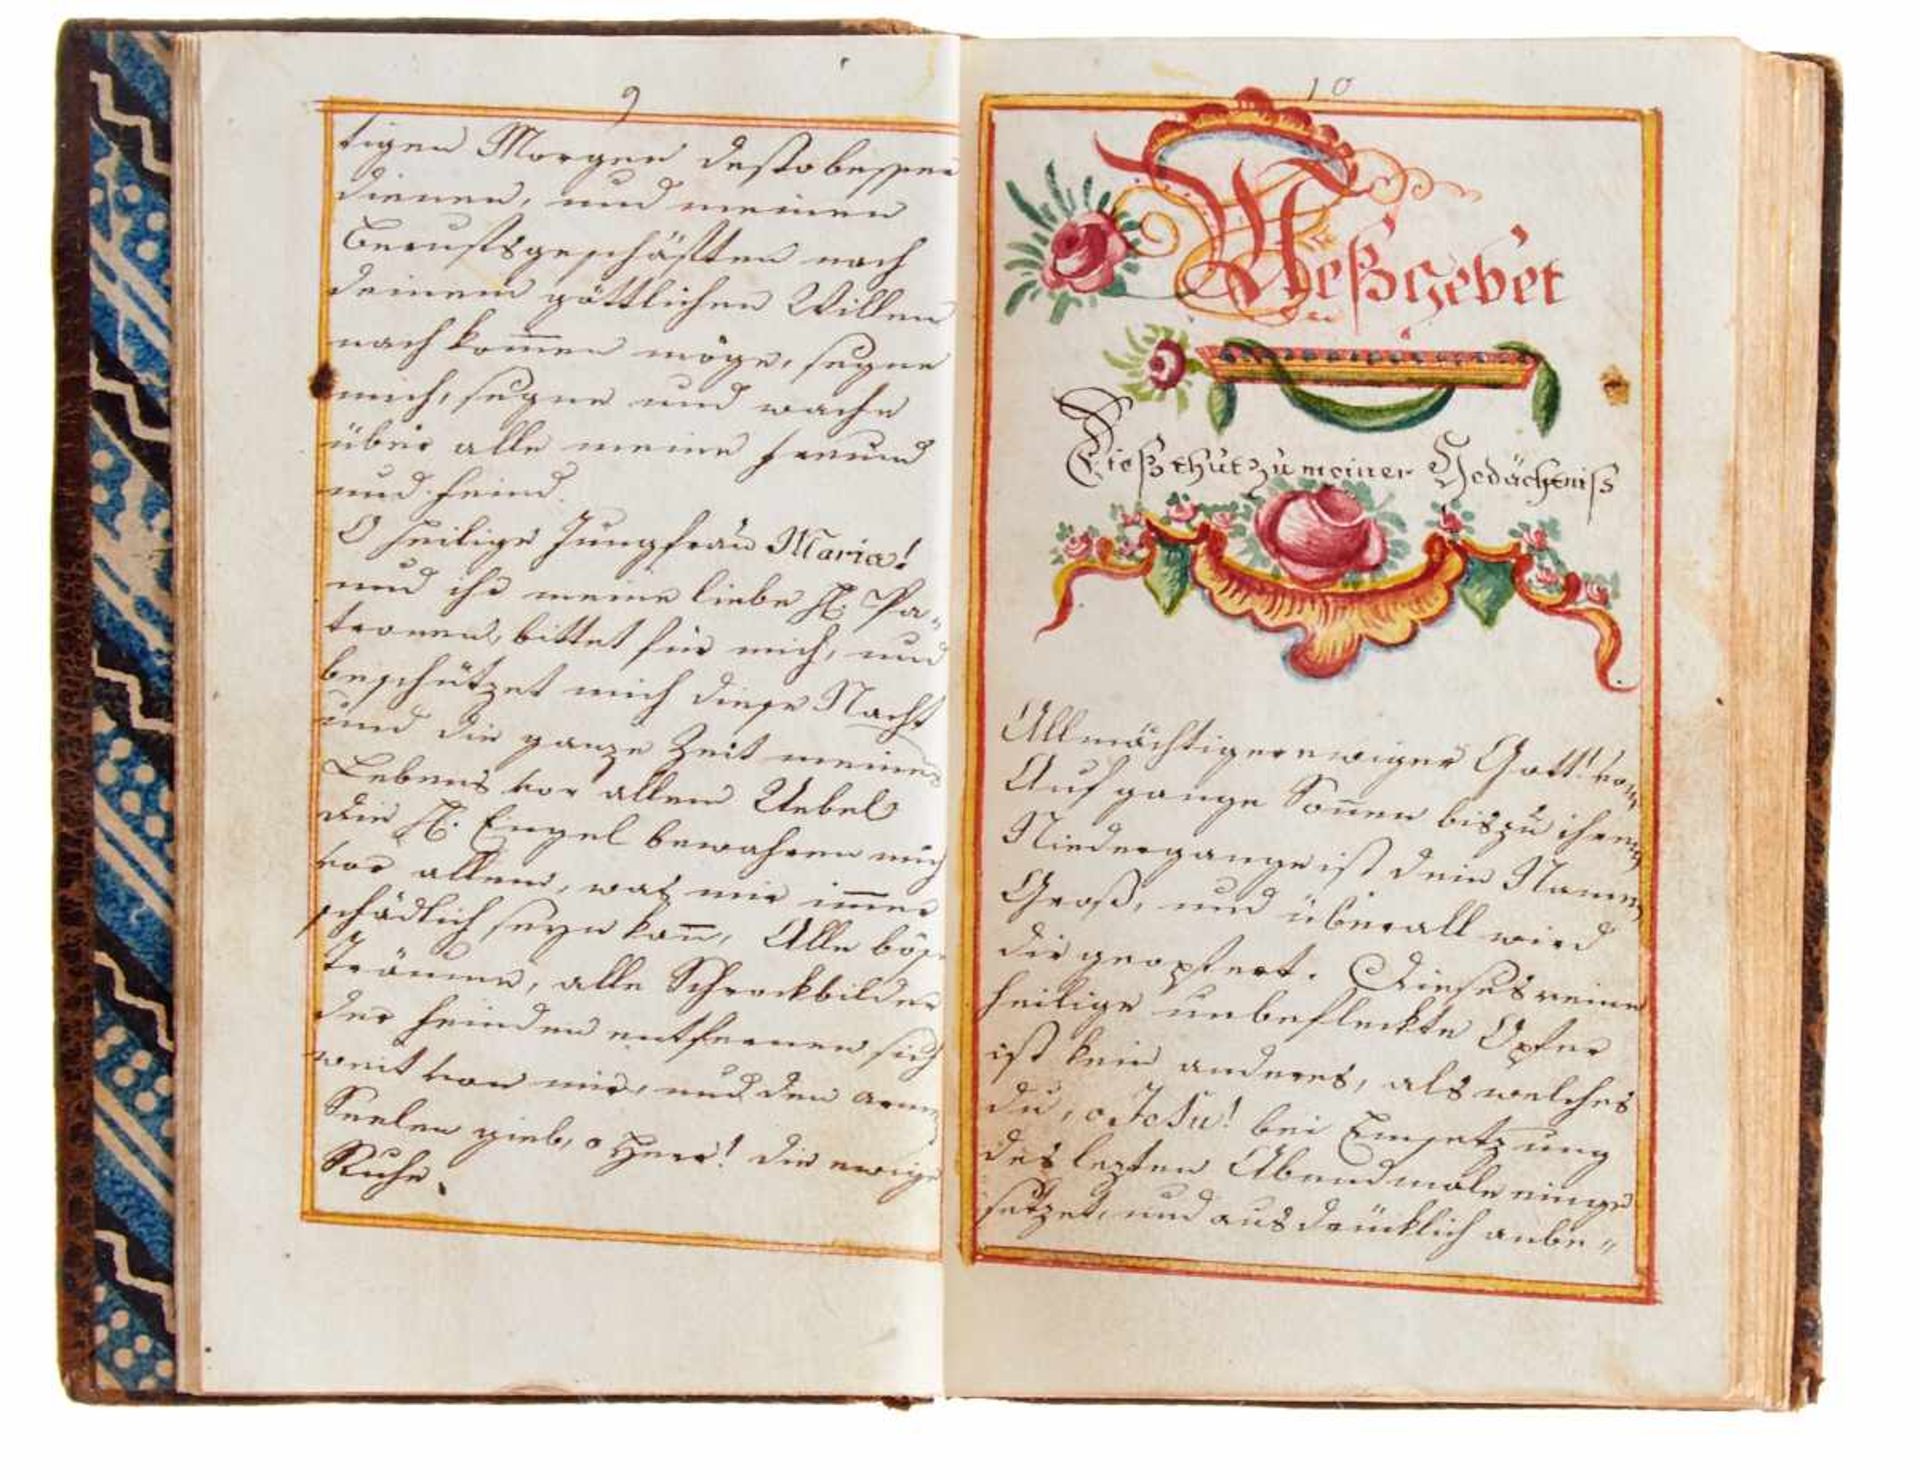 9
tigen Morgen desto besser
dienen, und meinen
Berufsgeschäften nach
deinem göttlichen Willen
nach kom̅en möge, segne
mich, segne und wache
über alle meine freund
und feind.
O heilige Jungfrau Maria!
und ihr meine liebe H. Pa-
tronen, bittet für mich, und
beschützet mich diese Nacht
und die ganze Zeit meines
Lebens vor allem Uebel
die H. Engel bewahren mich
vor allem, was mir im̅er
schädlich seyn kan̅, Alle böse
Träume, alle Schrockbilder
der feinden entfernen sich
weit von mir, und den armen
Seelen gieb, o Herr! die ewige
Ruhe.
10
Meßgebet
Dießthut zu meiner Gedächtniß
Allmächtiger ewiger Gott! vom
Aufgange Son̅en bis zu ihrem
Niedergange ist dein Namen
Groß, und überall wird
dir geopfert. Dieses reine
heilige unbefleckte Opfer
ist kein anderes, als welches
du, o Jesu! bei Einsetzung
des lezten Abendmale einge
setzet, und ausdrücklich anbe-